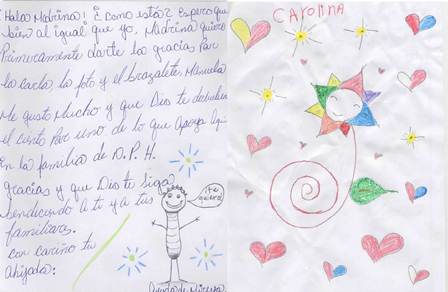 Halao Madrina! È como estás È Espero que
bien al igual que yo, Madrina quiero
Primeramente darte la gracias Por
la carla, la foto y el brazalete. Manuela
Me gusto Mucho y que Dios te
el ciento Por uno de lo que Apoya Aquí
En la familia de N.P.H.
gracias y que Dios te siga
bendiciendo A ti y a tus
familiares.
con cariño tu
Ahijada:
¡te quiero!
CAROLINA